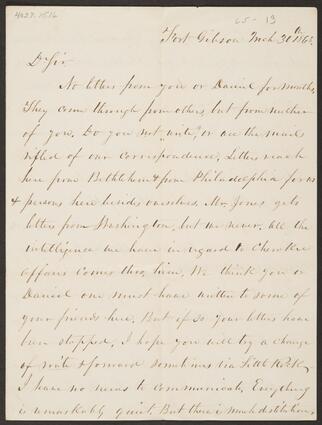 4027.1516
65-13
Fort Gibson Mch 30th 1865
Dr Sir
No letters from you or Daniel for months.
They come through from others, but from neither
of you. Do you not "write," or are the mails
rifled of our correspondence. Letters reach
here from Bethlehem & from Philadelphia for us
& persons here besides ourselves. Mr. Jones gets
letters from Washington, but we never. All the
intelligence we have in regard to Cherokee
affairs comes thro. him. We think you or
Daniel one must have written to some of
your friends here. But if so your letters have
been stopped. I hope you will try a change
of route & forward sometimes via Little Rock.
I have no news to communicate. Everything
is remarkably quiet. But there is much destitution,